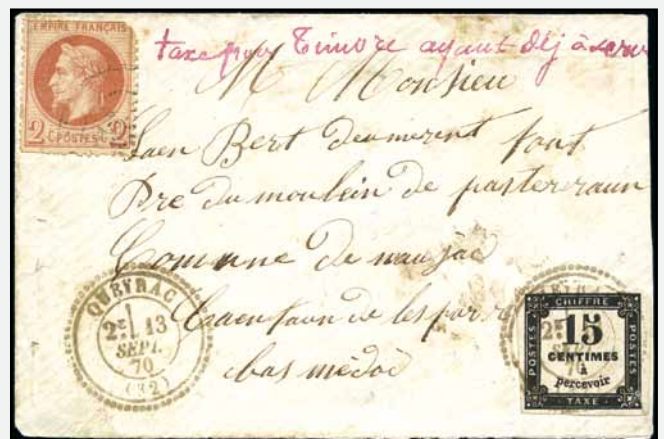 EMPIRE FRANÇAIS
2 C POSTES C 2
taxe pour Timbre ayant déjà servi
M Monsieu
Bert demurent tout
Pre du moulein de
Comune de naujac
de lesparre
bas médoc
QUEYRAC
2E 13
SEPT.
70
(32)
CHIFFRE
POSTES
15
CENTIMES
à
percevoir
POSTES
TAXE